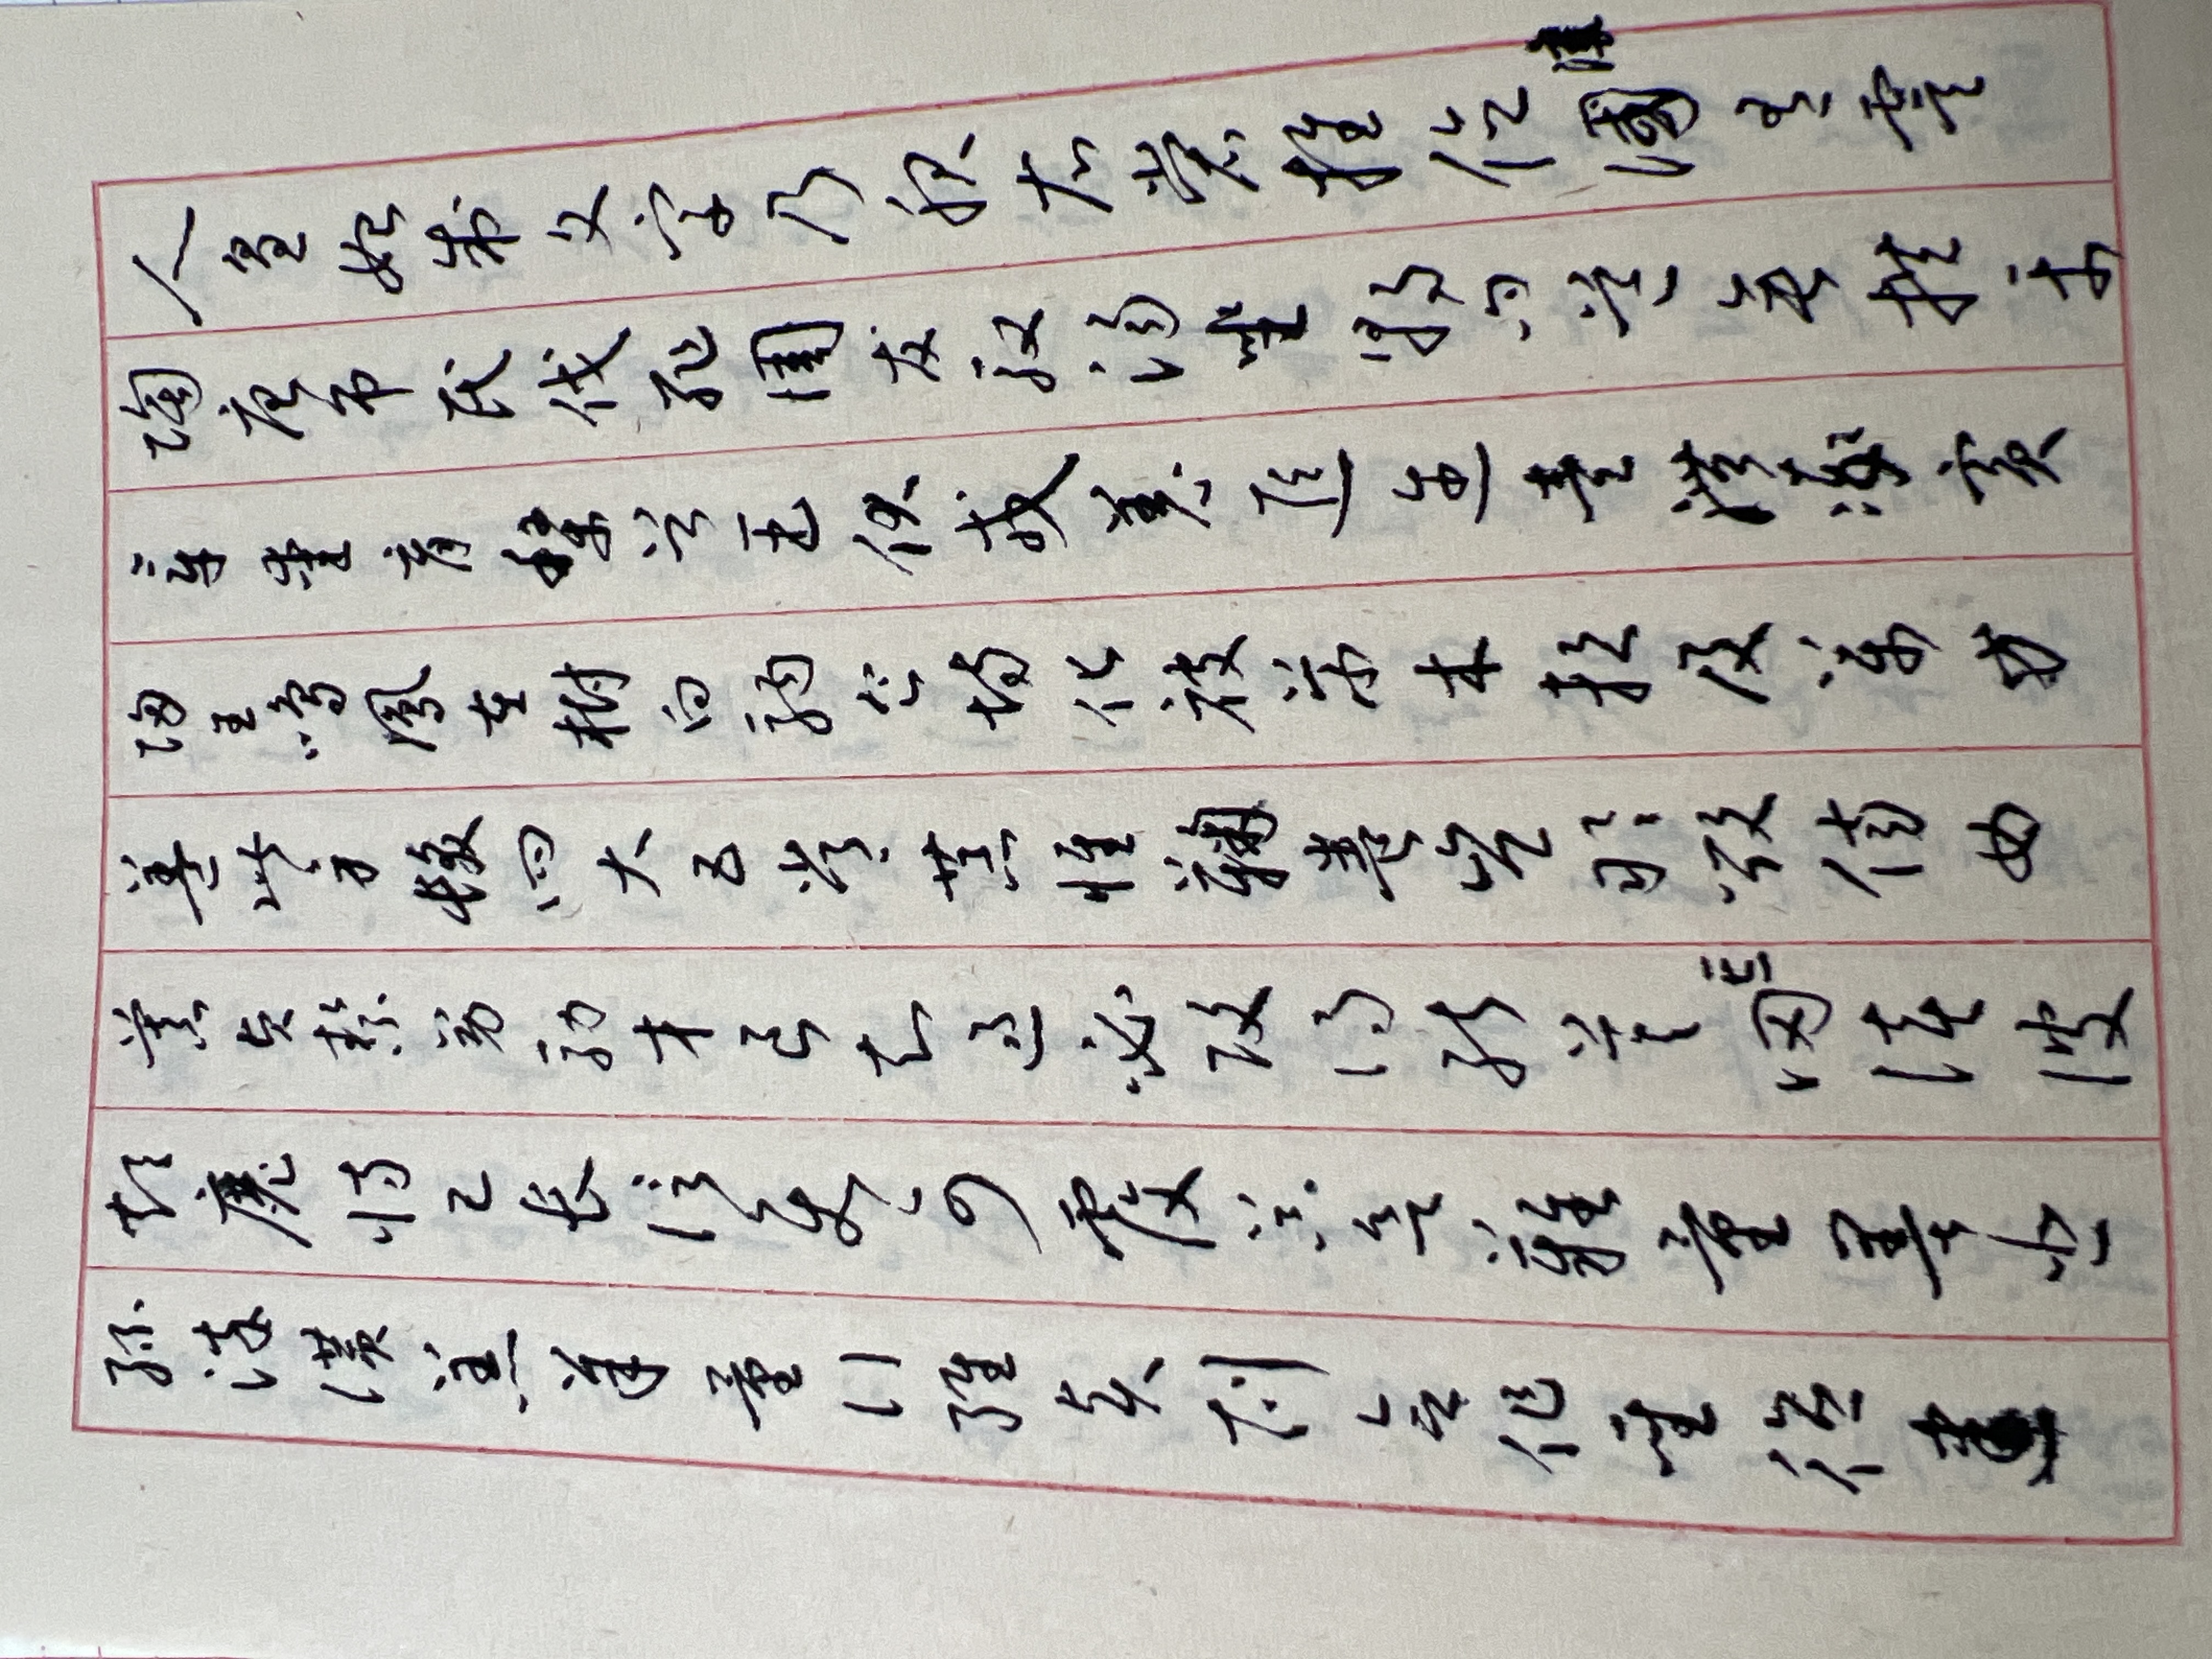 人皇始制文字乃服衣裳推位讓國有虞
陶唐吊民伐罪周发殷湯坐朝问道垂拱平
章愛育黎首臣伏戎羌遐迩壹體率賓
歸王鳴鳳在樹白駒食場化被草木賴及萬方
蓋此身髮四大五常恭惟鞠養豈敢毀傷女
慕貞絜男効才良知過必改得能莫忘罔談彼
短靡恃己長信使可覆器欲難量墨悲
絲染讚羔羊景行維賢剋念作聖德建